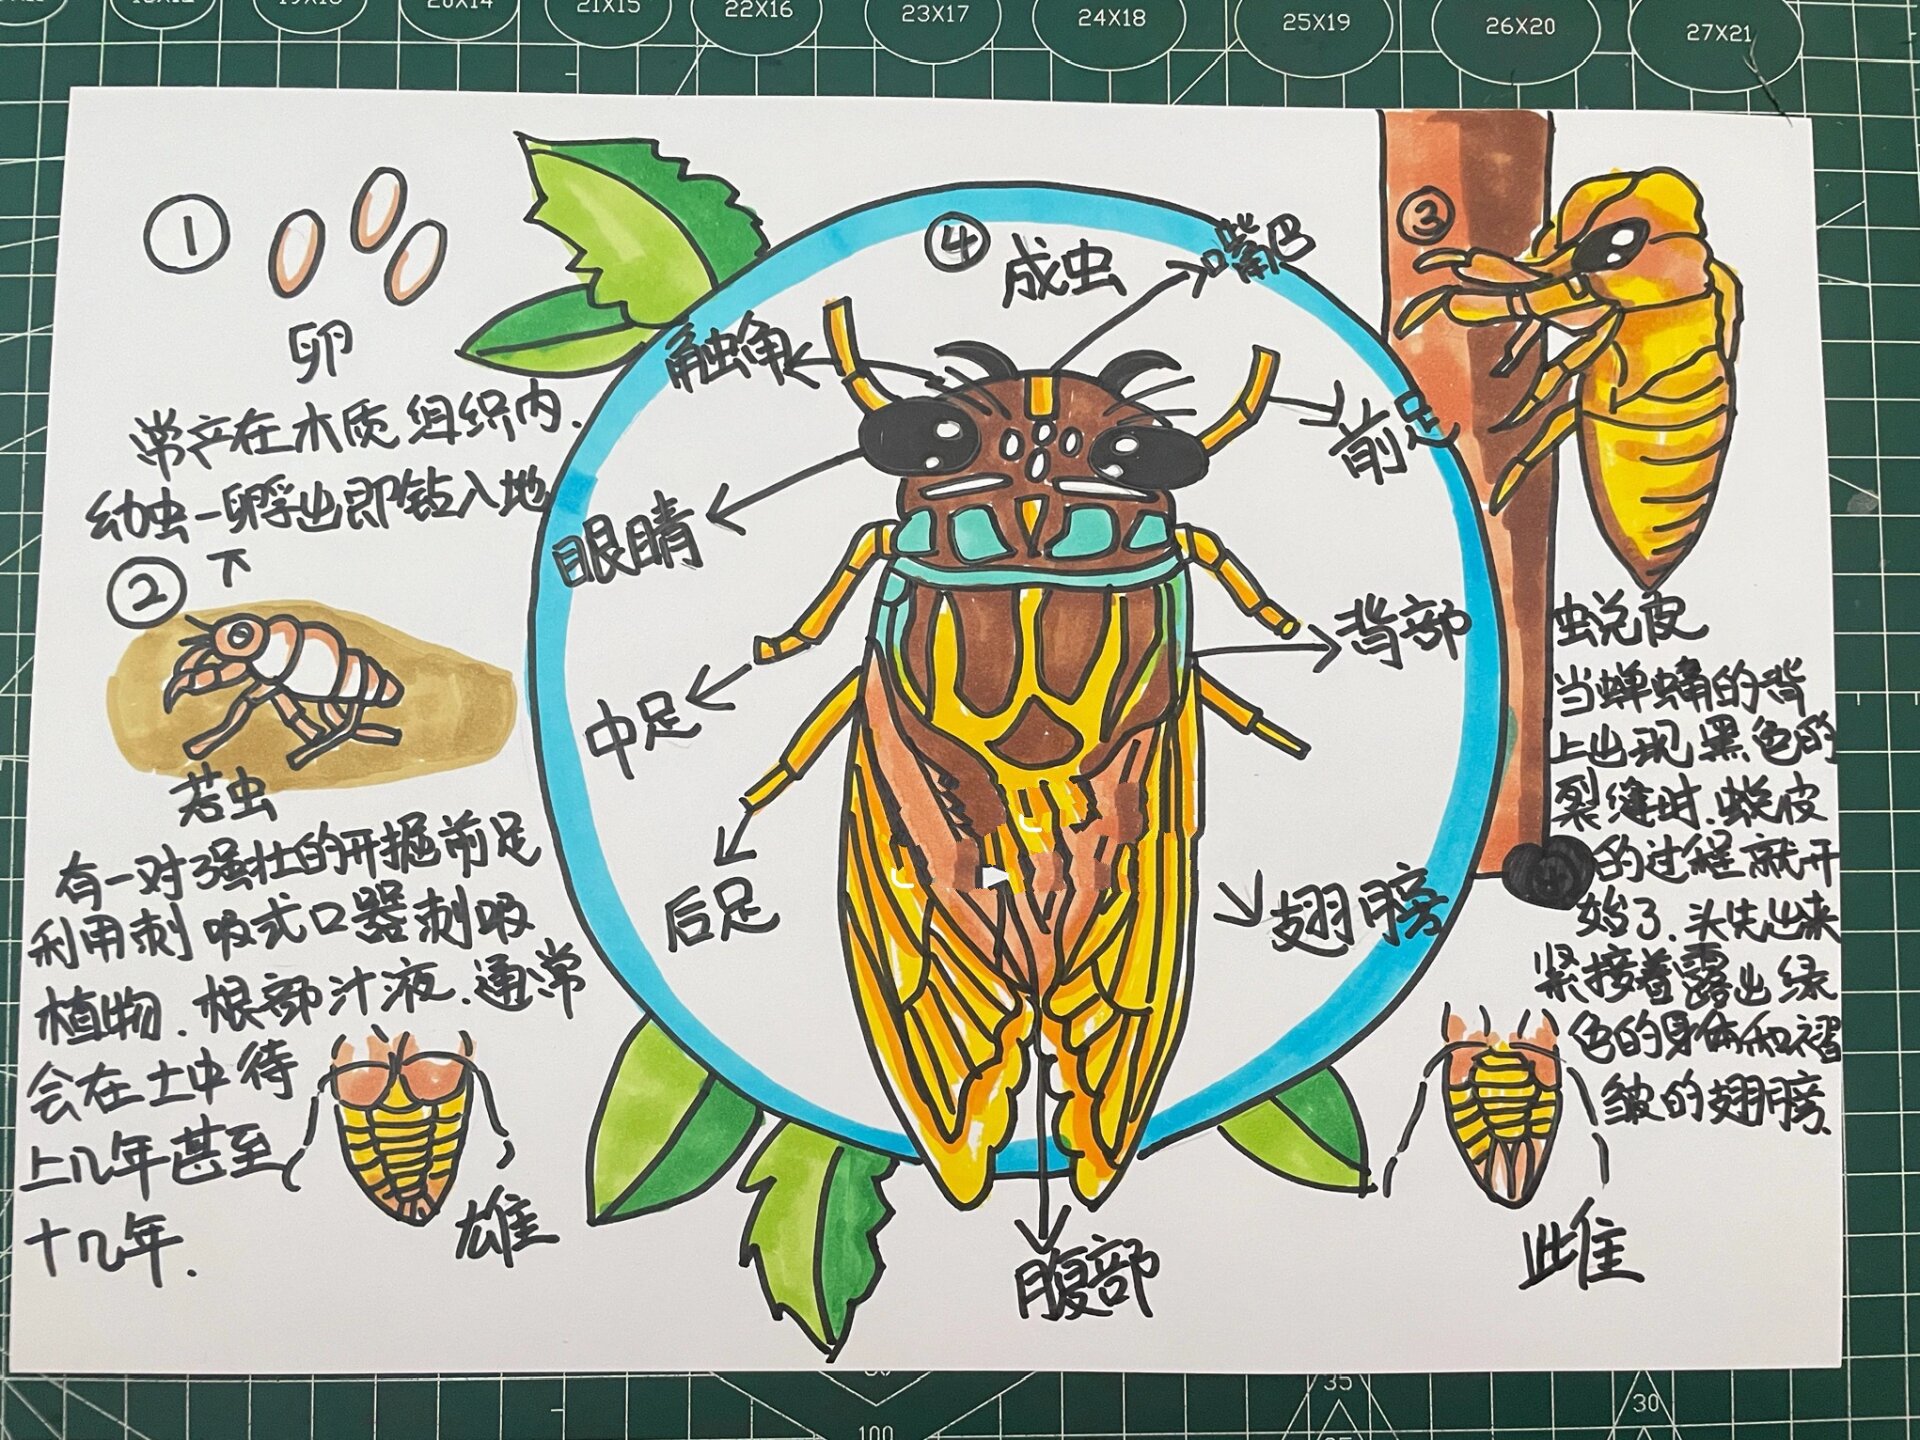 18X12
19X16
20X14
21X15
22X16
23X17
24X18
25X19
26X20
27X21
①
卵
常产在木质组织内.
幼虫一孵出即钻入地
下
②
若虫
有一对强壮的开掘前足
利用刺吸式口器刺吸
植物.根部汁液.通常
会在土中待
上几年甚至
十几年.
雄
④
成虫
嘴巴
触角
前足
眼睛
背部
中足
后足
翅膀
腹部
③
虫蜕皮
当蝉蛹的背
上出现黑色的
裂缝时.蜕皮
的过程就开
始了.头先出来
紧接着露出绿
色的身体和褶
皱的翅膀.
雌
100
35
30